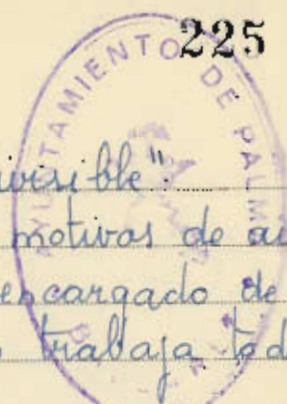 225
AYUNTAMIENTO DE PALM
visible".
motivos de
encargado de
trabaja tod